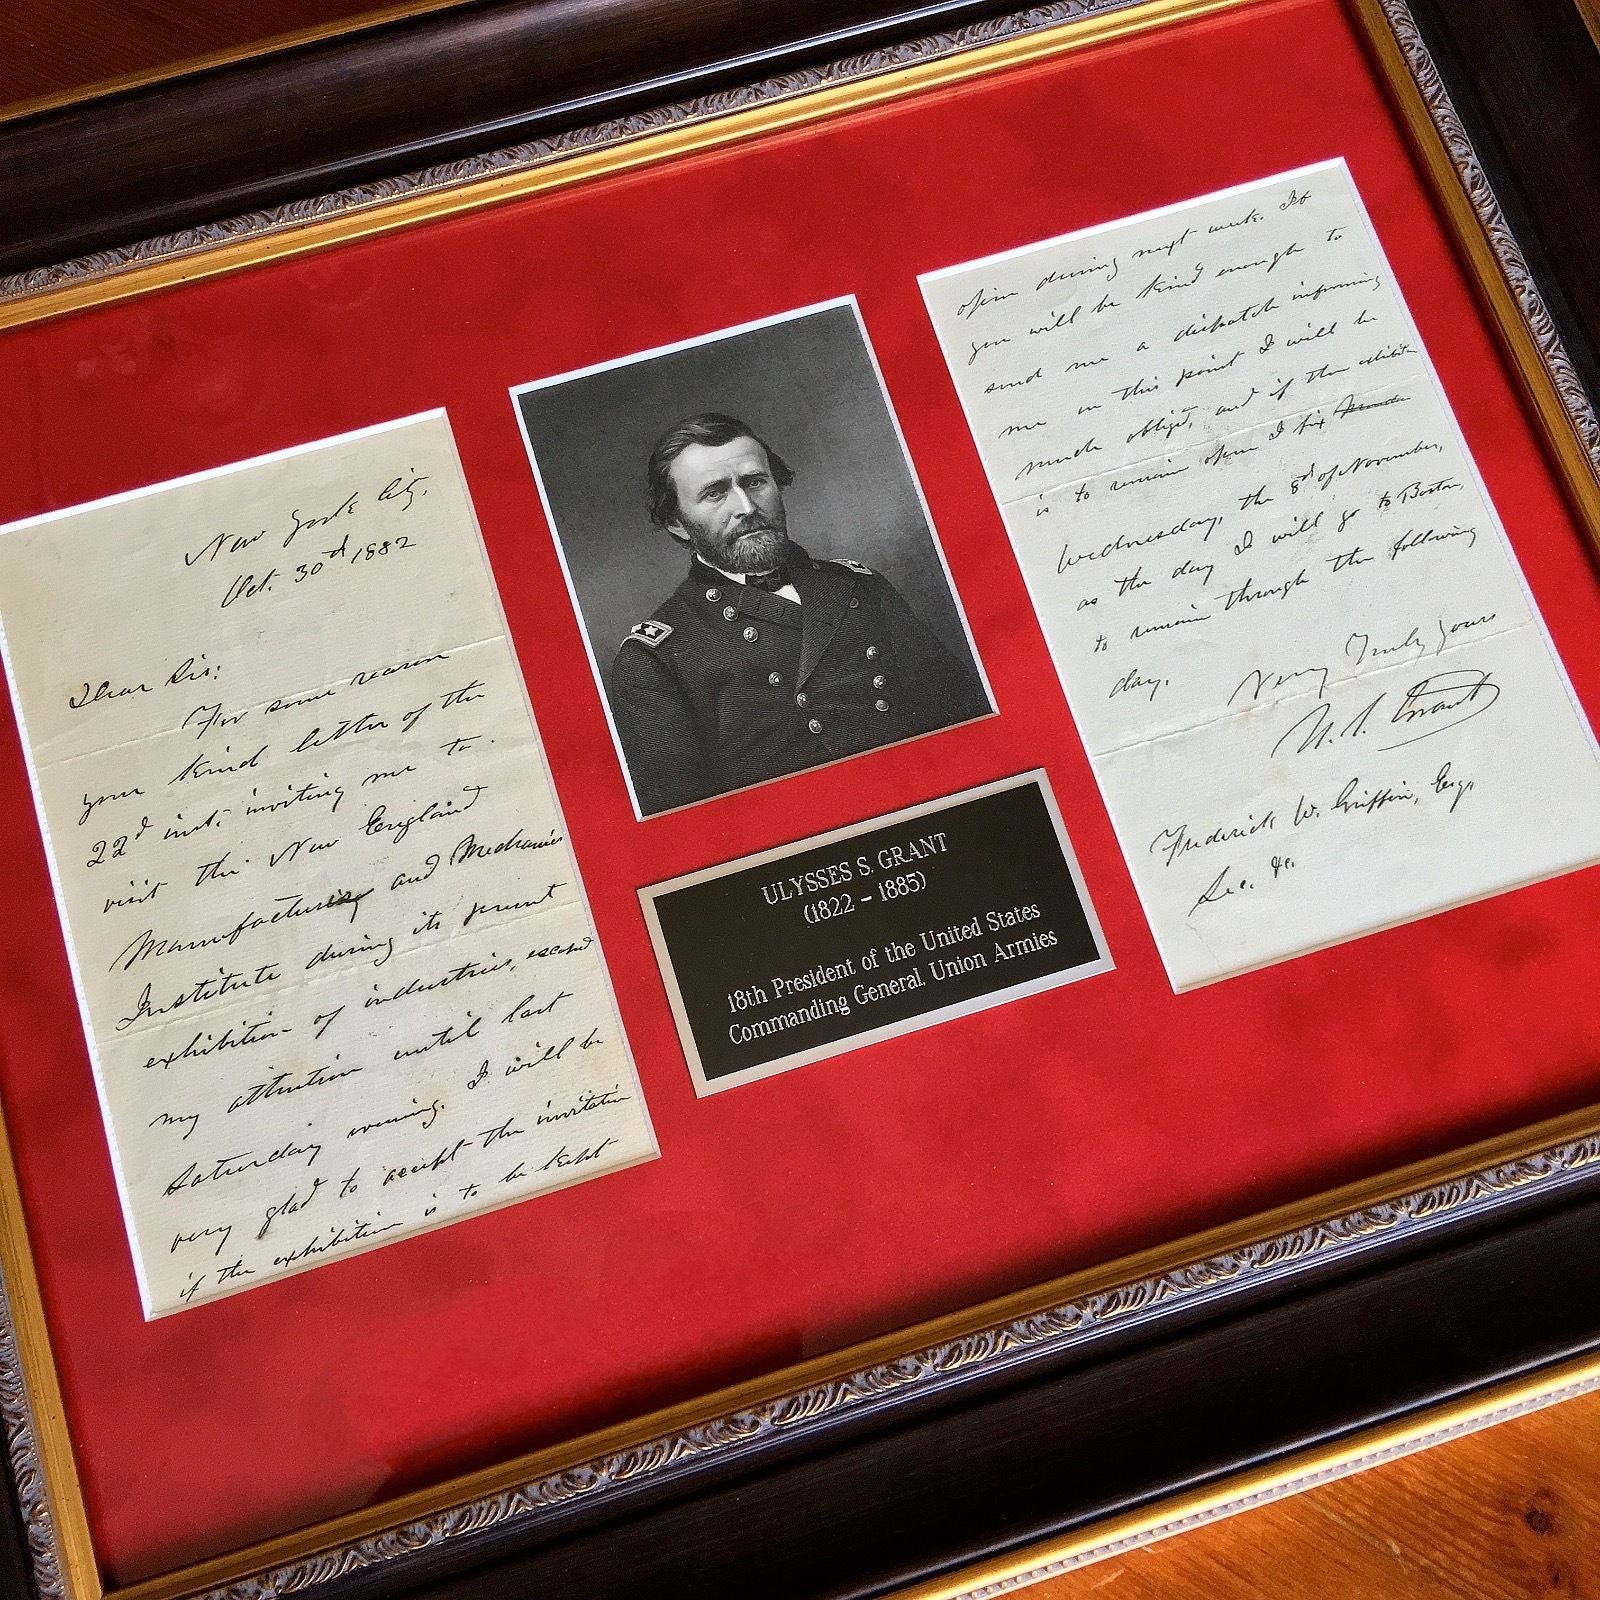 New York City,
Oct. 30d 1882
Dear Sir:
For some reason
your kind letter of the
22d inst. inviting me to
visit the New England
Manufacturing and Mechanics
Institute during its present
exhibition of industries, escaped
my attention until last
Saturday evening. I will be
very glad to accept the invitation
if the exhibition is to be kept
ULYSSES S. GRANT
(1822 – 1885)
18th President of the United States
Commanding General, Union Armies
open during next week. If
you will be kind enough to
send me a dispatch informing
me on this point I will be
much obliged, and if the exhibition
is to remain open I fix
Wednesday, the 8d of November,
as the day I will go to Boston,
to remain through the following
day.
Very Truly yours
U. S. Grant
Frederick W. Griffin, Esq.
Sec. &c.